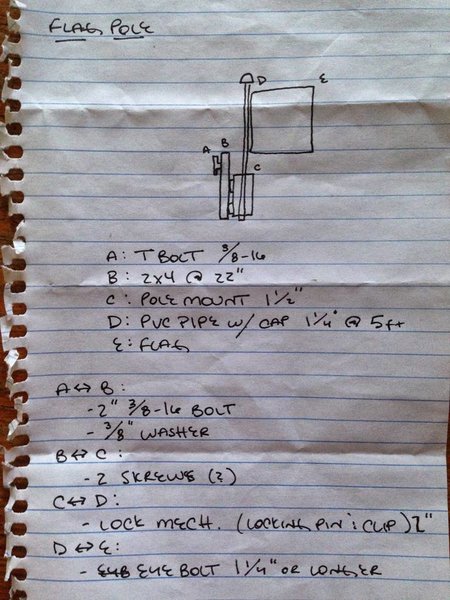 FLAG POLE
D E
A B
C
A: T BOLT 3/8-16
B: 2x4 @ 22"
C: POLE MOUNT 1½"
D: PVC PIPE W/ CAP 1¼" @ 5ft
E: FLAG
A↔B:
- 2" 3/8-16 BOLT
- 3/8" WASHER
B↔C:
- 2 SKREWS (2)
C↔D:
- LOCK MECH. (LOCKING PIN & CLIP) 2"
D↔E:
- EYE BOLT 1¼" OR LONGER